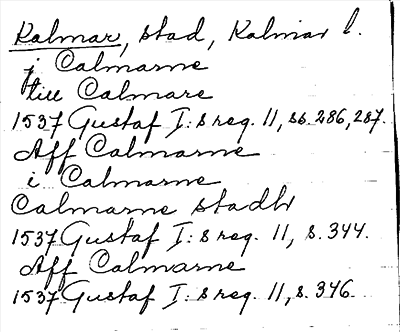 Kalmar, stad, Kalmar l.
j Calmarne
till Calmare
1537 Gustaf I:s reg. 11, ss. 286, 287.
Aff Calmarne
i Calmarne
Calmarne stadh
1537 Gustaf I:s reg. 11, s. 344.
Aff Calmarne
1537 Gustaf I:s reg. 11, s. 346.